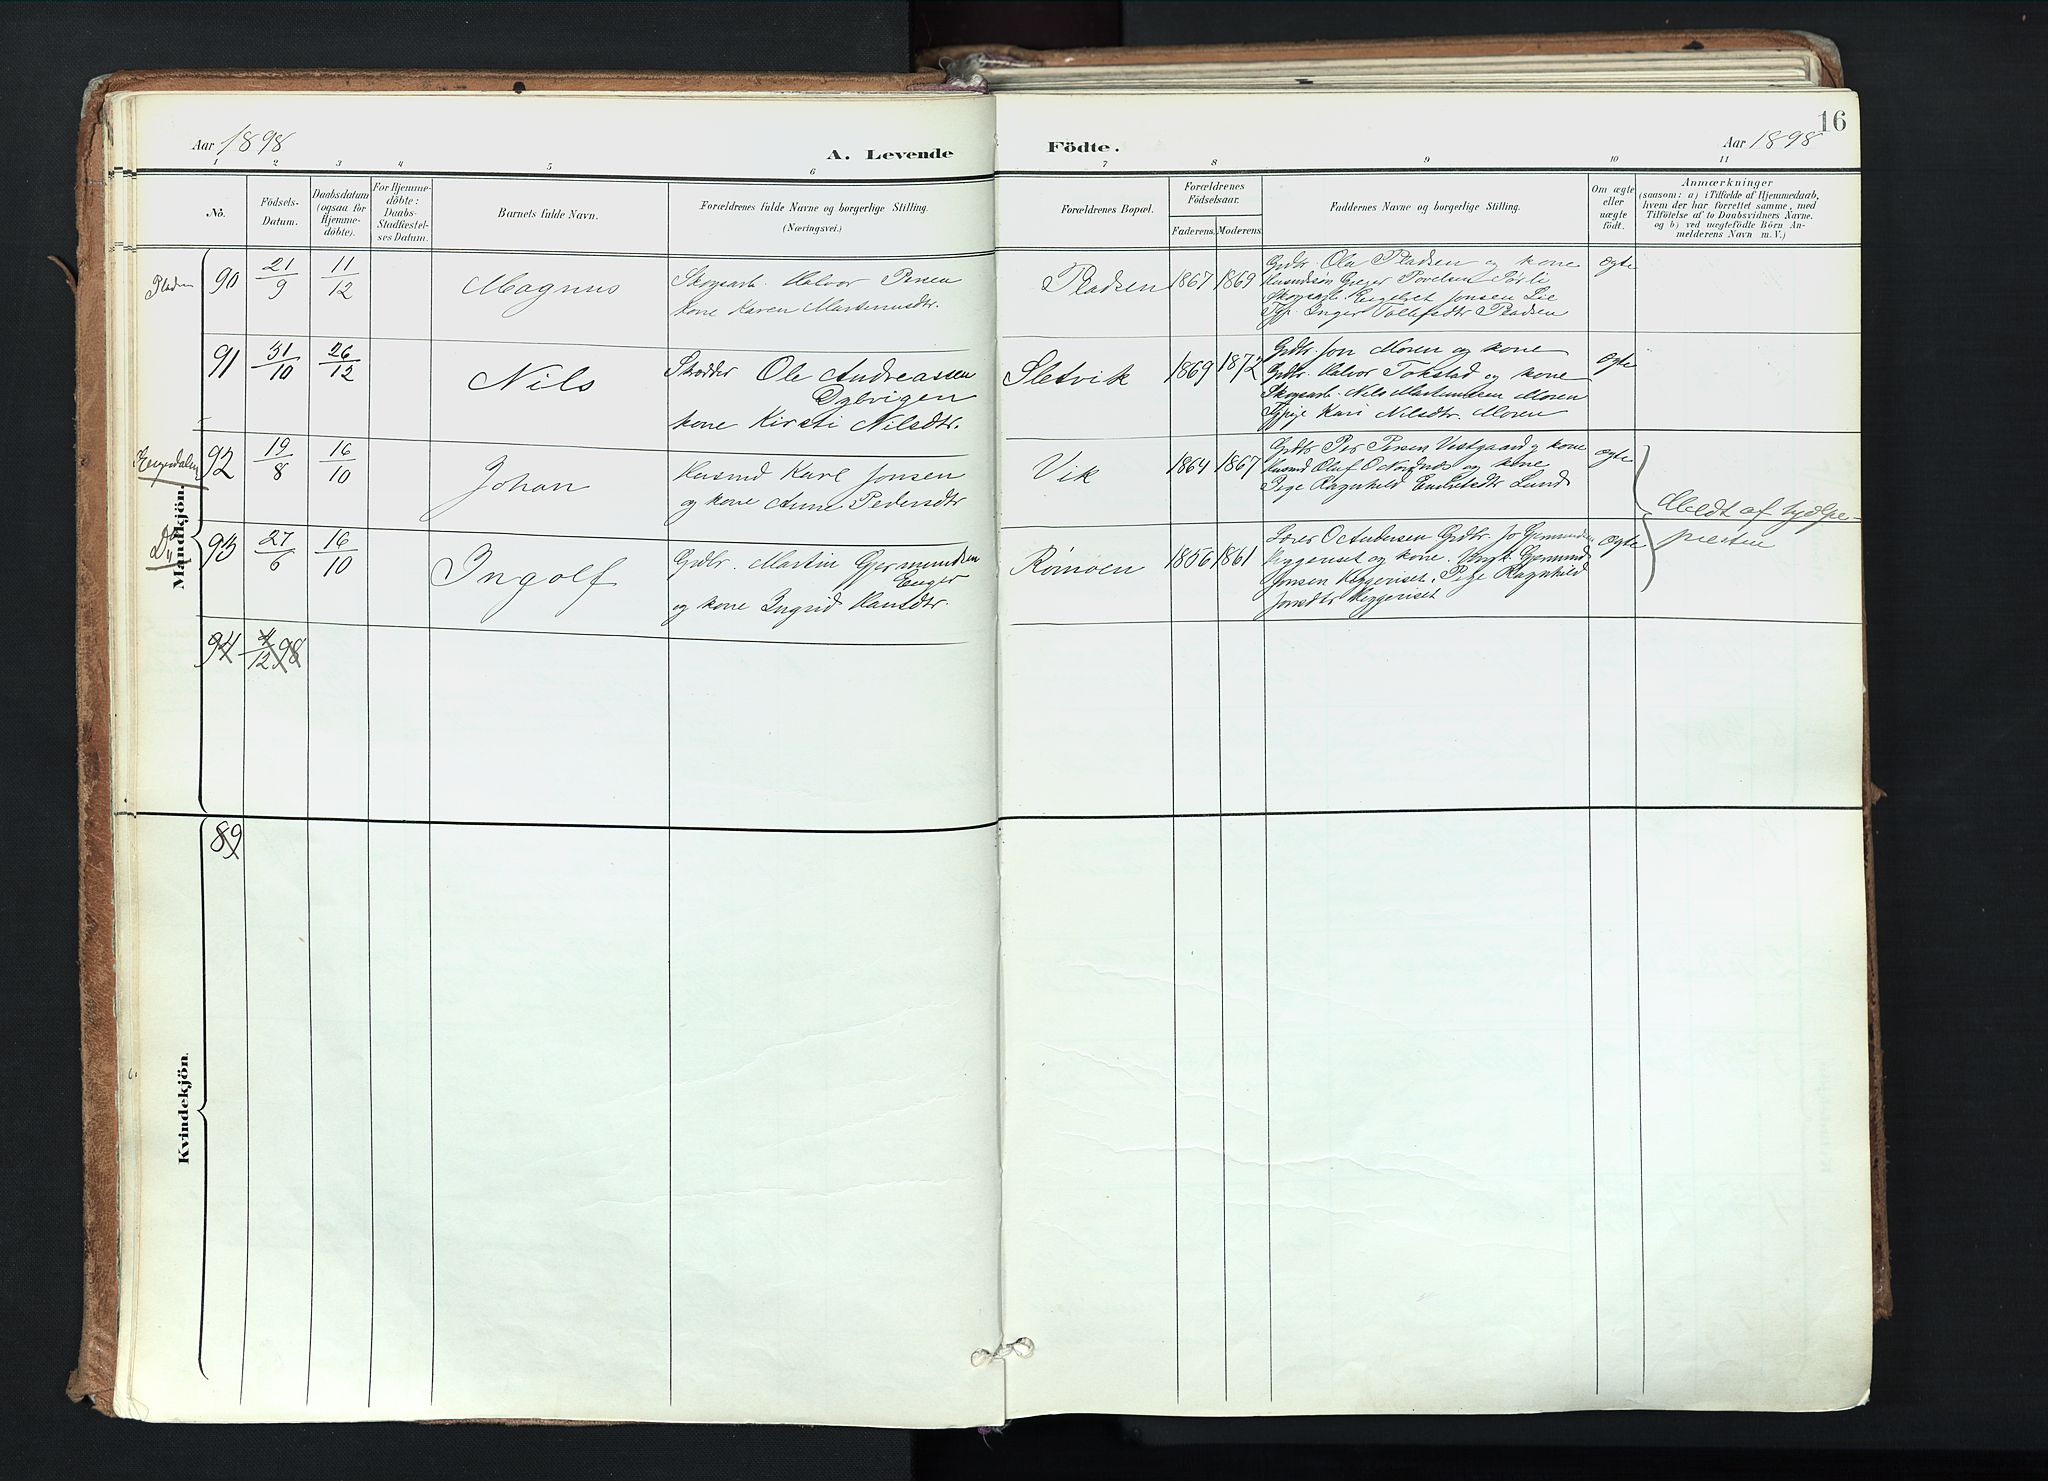 Aar 1898
A. Levende
Födte.
Aar 1898
16
1 2 3 4 5 6 7 8 9 10 11
No.
Födsels-
Datum.
Daabsdatum
(ogsaa for
Hjemme-
döbte).
For Hjemme-
döbte:
Daabs-
Stadfæstel-
ses Datum.
Barnets fulde Navn.
Forældrenes fulde Navne og borgerlige Stilling.
(Næringsvei.)
Forældrenes Bopæl.
Forældrenes
Födselsaar.
Faderens. Moderens.
Faddernes Navne og borgerlige Stilling.
Om ægte
eller
uægte
født.
Anmærkninger
(saasom: a) i Tilfælde af Hjemmedaab,
hvem der har forrettet samme, med
Tilføielse af to Daabsvidners Navne.
og b) ved uægtefödte Börn An-
melderens Navn m. V.)
Mandkjön.
Pladsen
90 21/9 11/12 Magnus
Skogsarb. Halvor Persen
kone Karen Martinusdtr.
Pladsen 1867 1869
Grdbr. Ola Pladsen og kone
Husmdsøn Greger Povelsen
Skogsarb. Engebret Jonsen Lie
Inger Pladsen
ægte
91 31/10 26/12 Nils
Skrædder Ole Andreassen
Dylvigen
kone Kirsti Nilsdtr.
Sletvik 1869 1872
Grdbr. Jon Moren og kone
Grdbr. Halvor Tokstad og kone
Skogsarb. Nils Martinussen Moren
Kari Nilsdtr. Moren
ægte
92 19/8 16/10 Johan
Husmd Karl Jonsen
og kone Anne Pedersdtr
Vik 1864 1867
Grdbr Per Persen Vestgaard og kone
Husmd Oluf O og kone
Pige Ragnhild Lund
ægte
Meldt af hjælpe-
præsten
Do
93 27/6 16/10 Ingolf
Grdbr. Martin Gjermundsen
Enger
og kone Ingrid Hansdtr.
Rømoen 1856 1861
O Andersen Grdbr. Jo Gjermundsen
Heggeriset og kone. Ungk Gjermund
Jonsen Heggeriset. Pige Ragnhild
Jonsdtr Heggeriset
ægte
94 4/12 98
89
Kvindekjön.